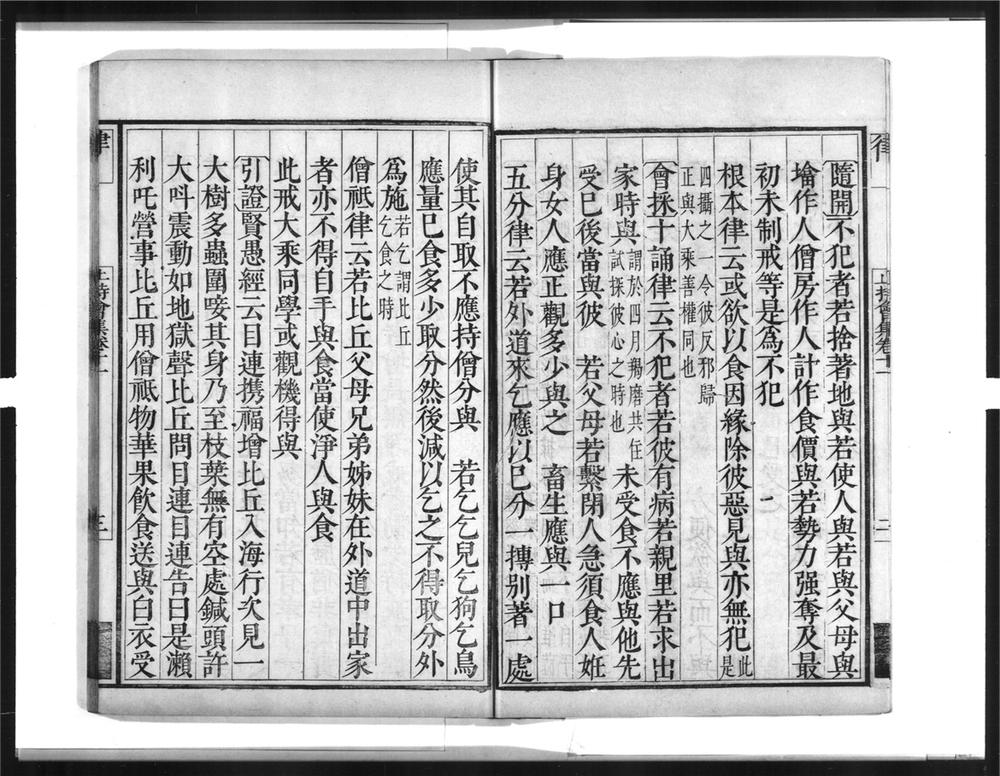 律
止持會集卷十一
二
隨開不犯者若捨著地與若使人與若與父母與
塔作人僧房作人計作食價與若勢力强奪及最
初未制戒等是為不犯
根本律云或欲以食因緣除彼惡見與亦無犯此是
四攝之一令彼反邪歸
正與大乘善權同也
會採十誦律云不犯者若彼有病若親里若求出
家時與謂於四月羯磨共住試探彼心之時也未受食不應與他先
受已後當與彼　若父母若繫閉人急須食人姙
身女人應正觀多少與之　畜生應與一口
五分律云若外道來乞應以已分一摶別著一處
使其自取不應持僧分與　若乞乞兒乞狗乞鳥
應量已食多少取分然後減以乞之不得取分外
為施若乞謂比丘乞食之時
僧祇律云若比丘父母兄弟姊妹在外道中出家
者亦不得自手與食當使淨人與食
此戒大乘同學或觀機得與
引證賢愚經云目連携福增比丘入海行次見一
大樹多蟲圍唼其身乃至枝葉無有空處鍼頭許
大呌震動如地獄聲比丘問目連目連告曰是瀨
利吒營事比丘用僧祇物華果飲食送與白衣受
律
止持會集卷十一
三